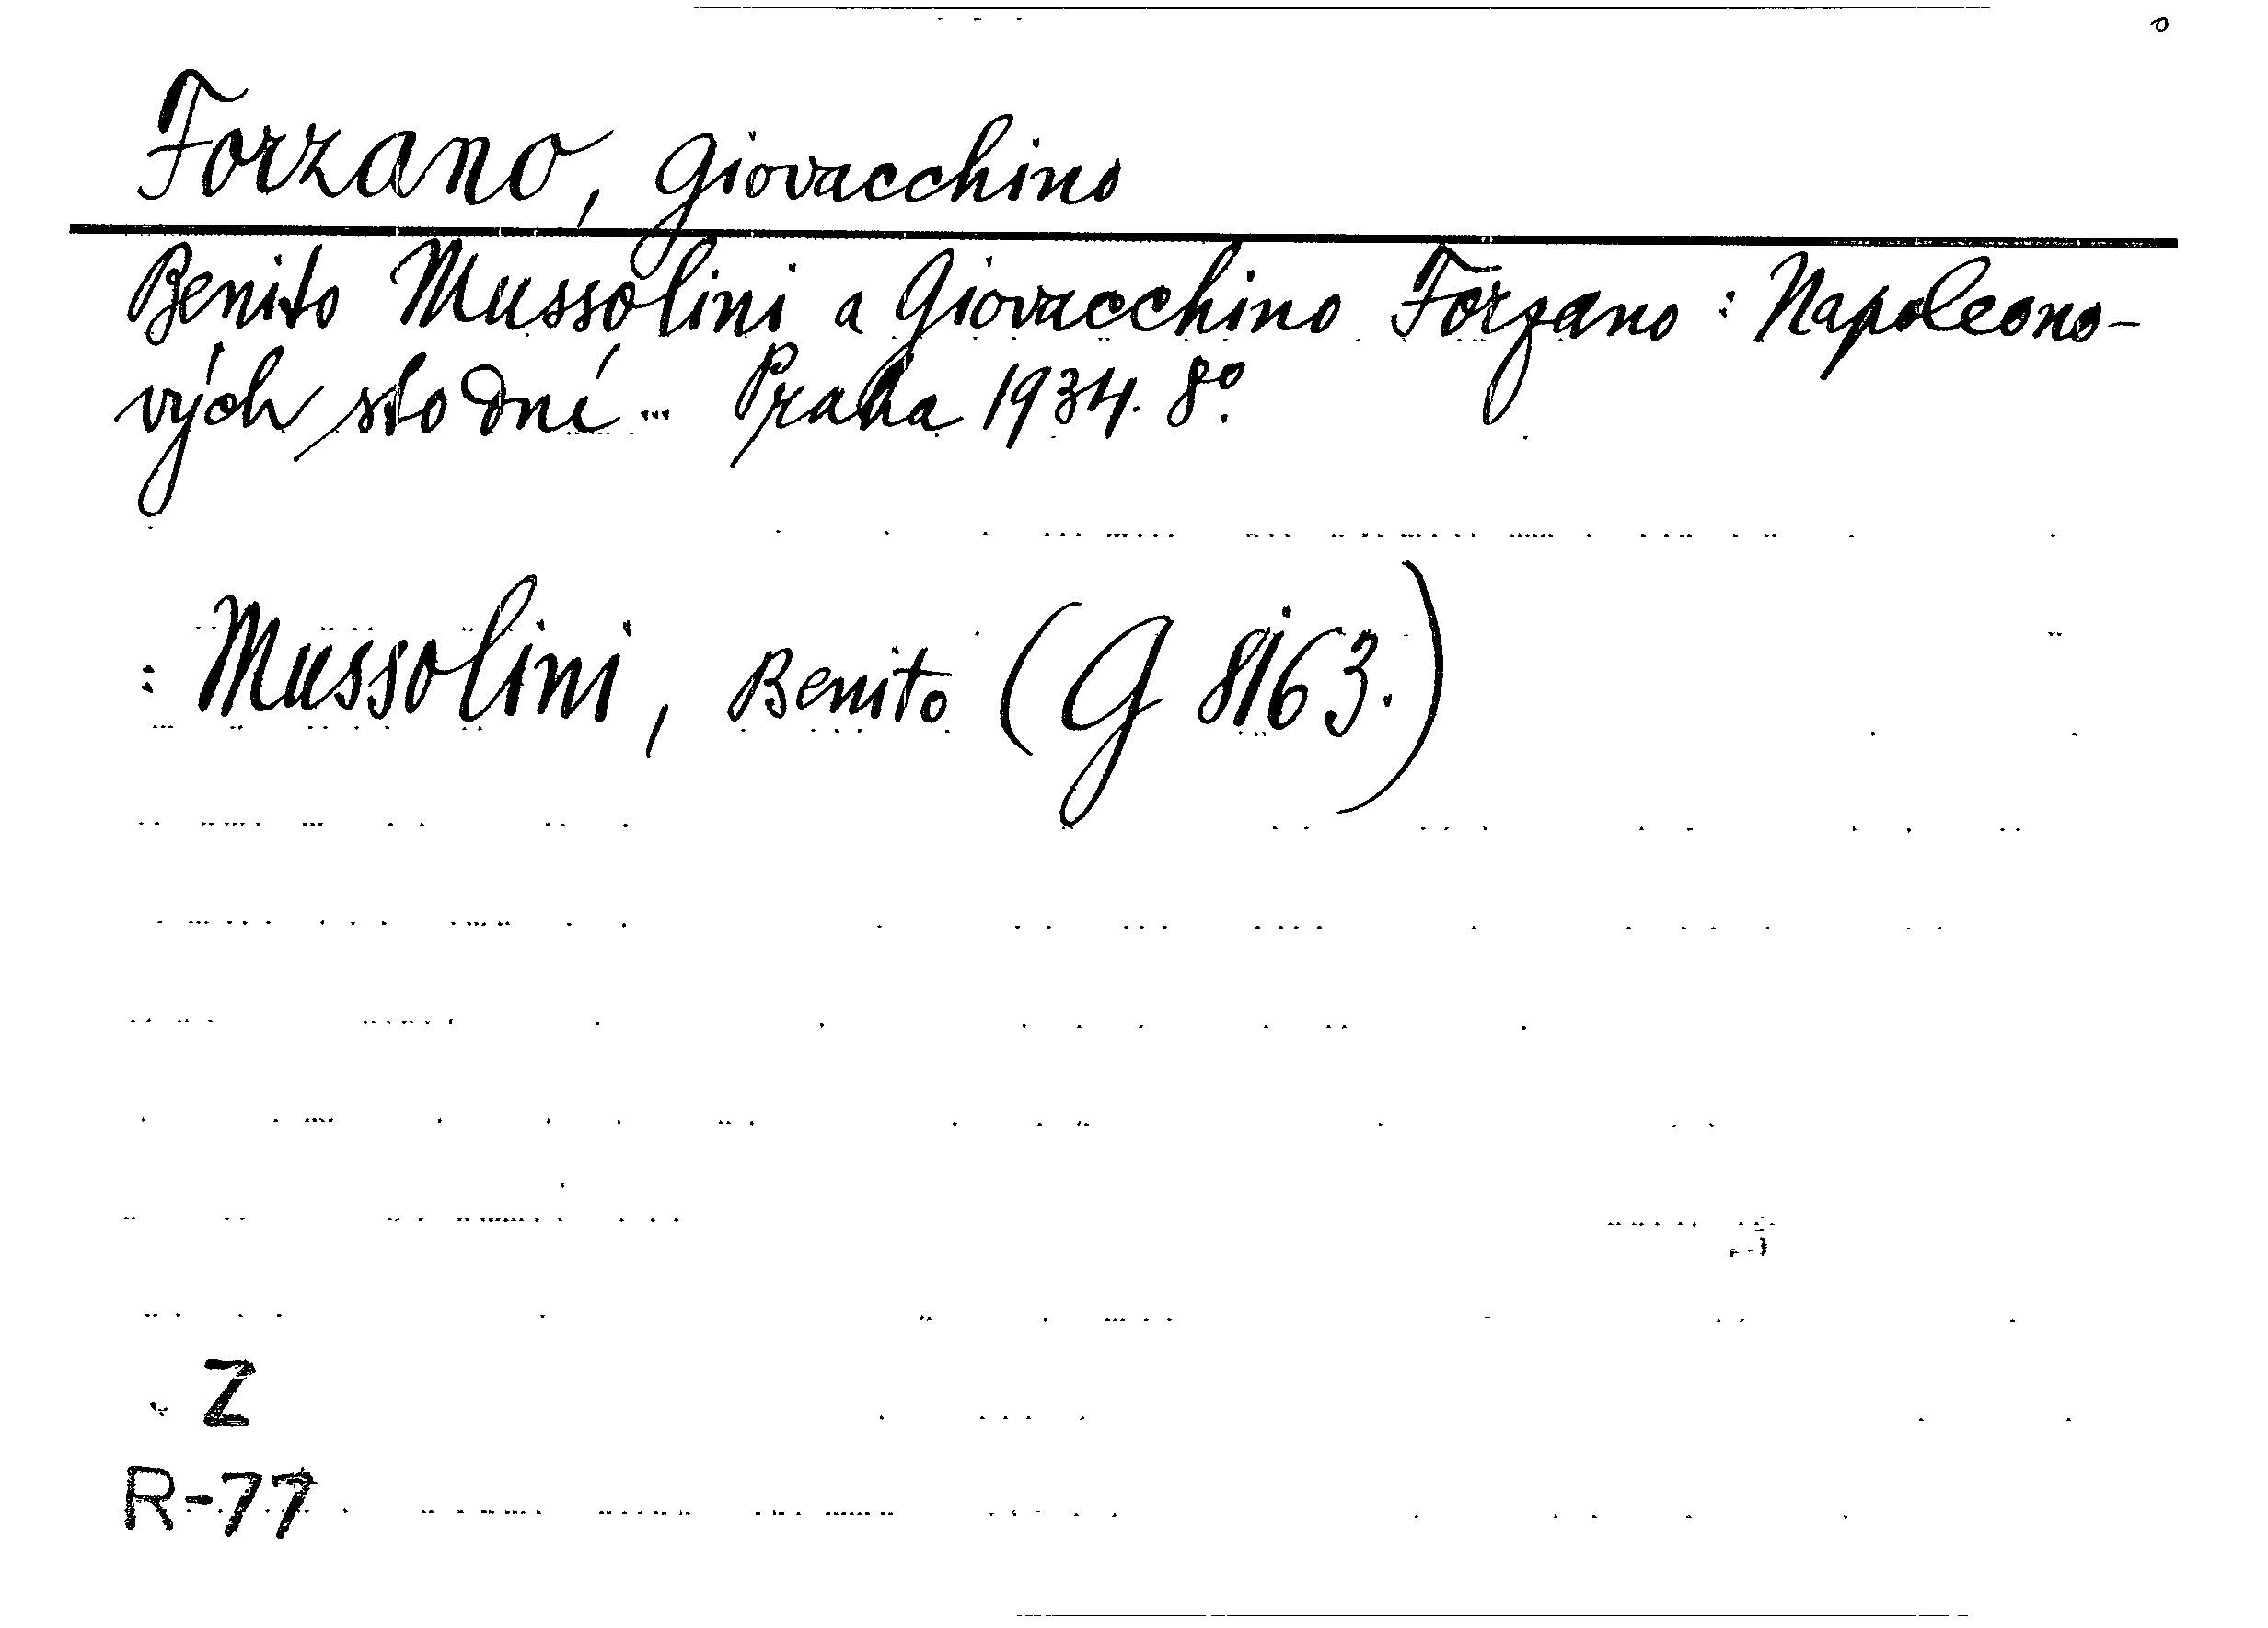 Forzano, Giovacchino
Benito Mussolini a Giovacchino Forzano : Napoleono-
vých sto dní ... Praha 1934. 8°.
: Mussolini, Benito (G 8163.)
Z
R-77